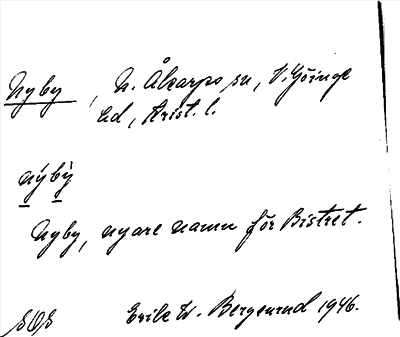 Nyby, N. Åkarps sn, V. Göinge
hd, Krist. l.
nýbỳ
Nyby, nyare namn för Bistret.
SOS Erik W. Bergenrud 1946.